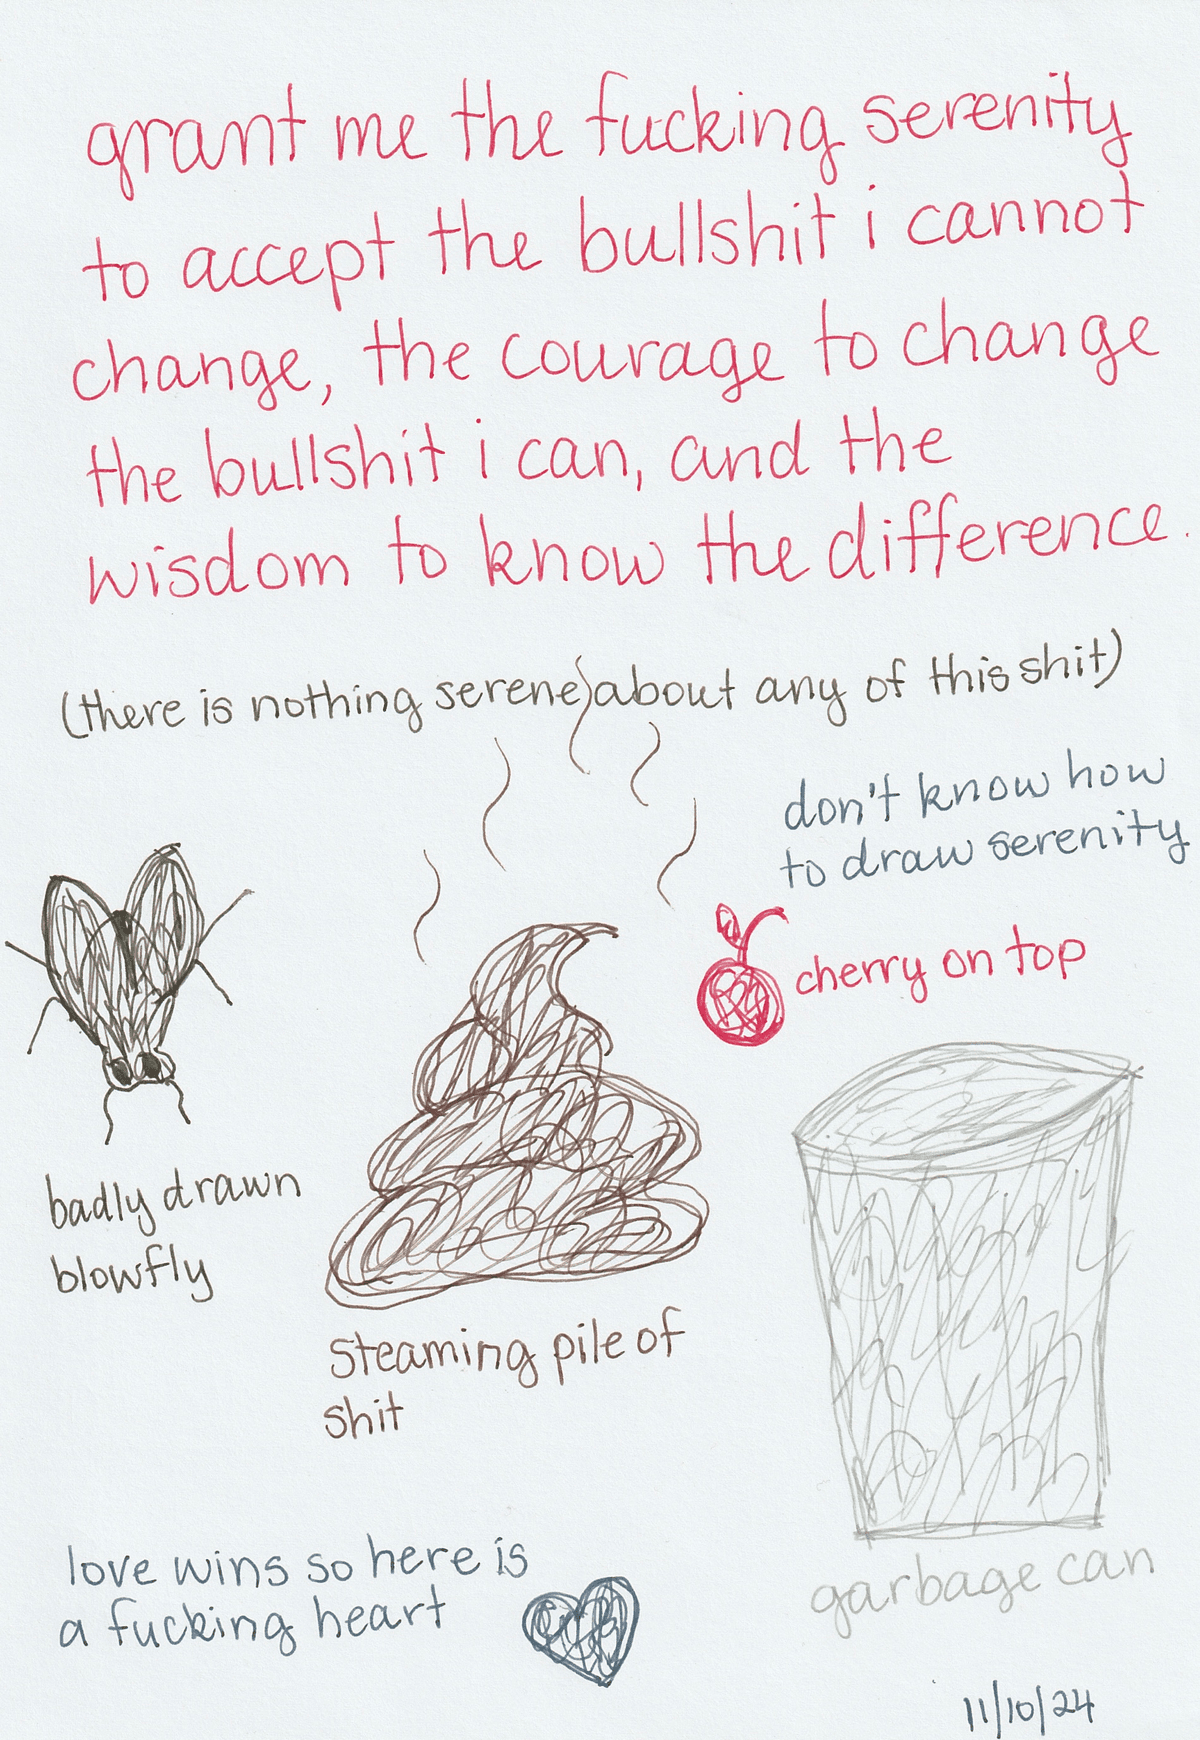 grant me the fucking serenity
to accept the bullshit i cannot
change, the courage to change
the bullshit i can, and the
wisdom to know the difference.
(there is nothing serene about any of this shit)
don't know how
to draw serenity
cherry on top
badly drawn
blowfly
steaming pile of
shit
garbage can
love wins so here is
a fucking heart
11/10/24